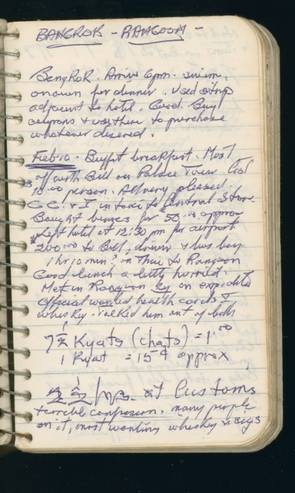 BANGKOK - RANGOON -
Bangkok. Arrive 6pm. swim,
on own for dinner. Used shop
adjacent to hotel. Good. Buy
coupons & use them to purchase
whatever desired.
Feb 10. Buffet breakfast. Most
off with Bill on Palace Tour. Cost
$10.00 person. All very pleased.
CC & I in taxi to Central Store
Bought for 50.00 approx
Left hotel at 12:30 pm for airport
$200.00 to Bill, driver & bus boy
1 hr 10 min in Thai to Rangoon
Good lunch a little hurried.
Met in Rangoon by on expedite
Official wanted health cards &
whisky. Talked him out of both
7½ Kyats (chats) = 1.00
1 Kyat = 15¢ approx
at Customs
terrible confusion. many people
on it, most wanting whiskey & cigs